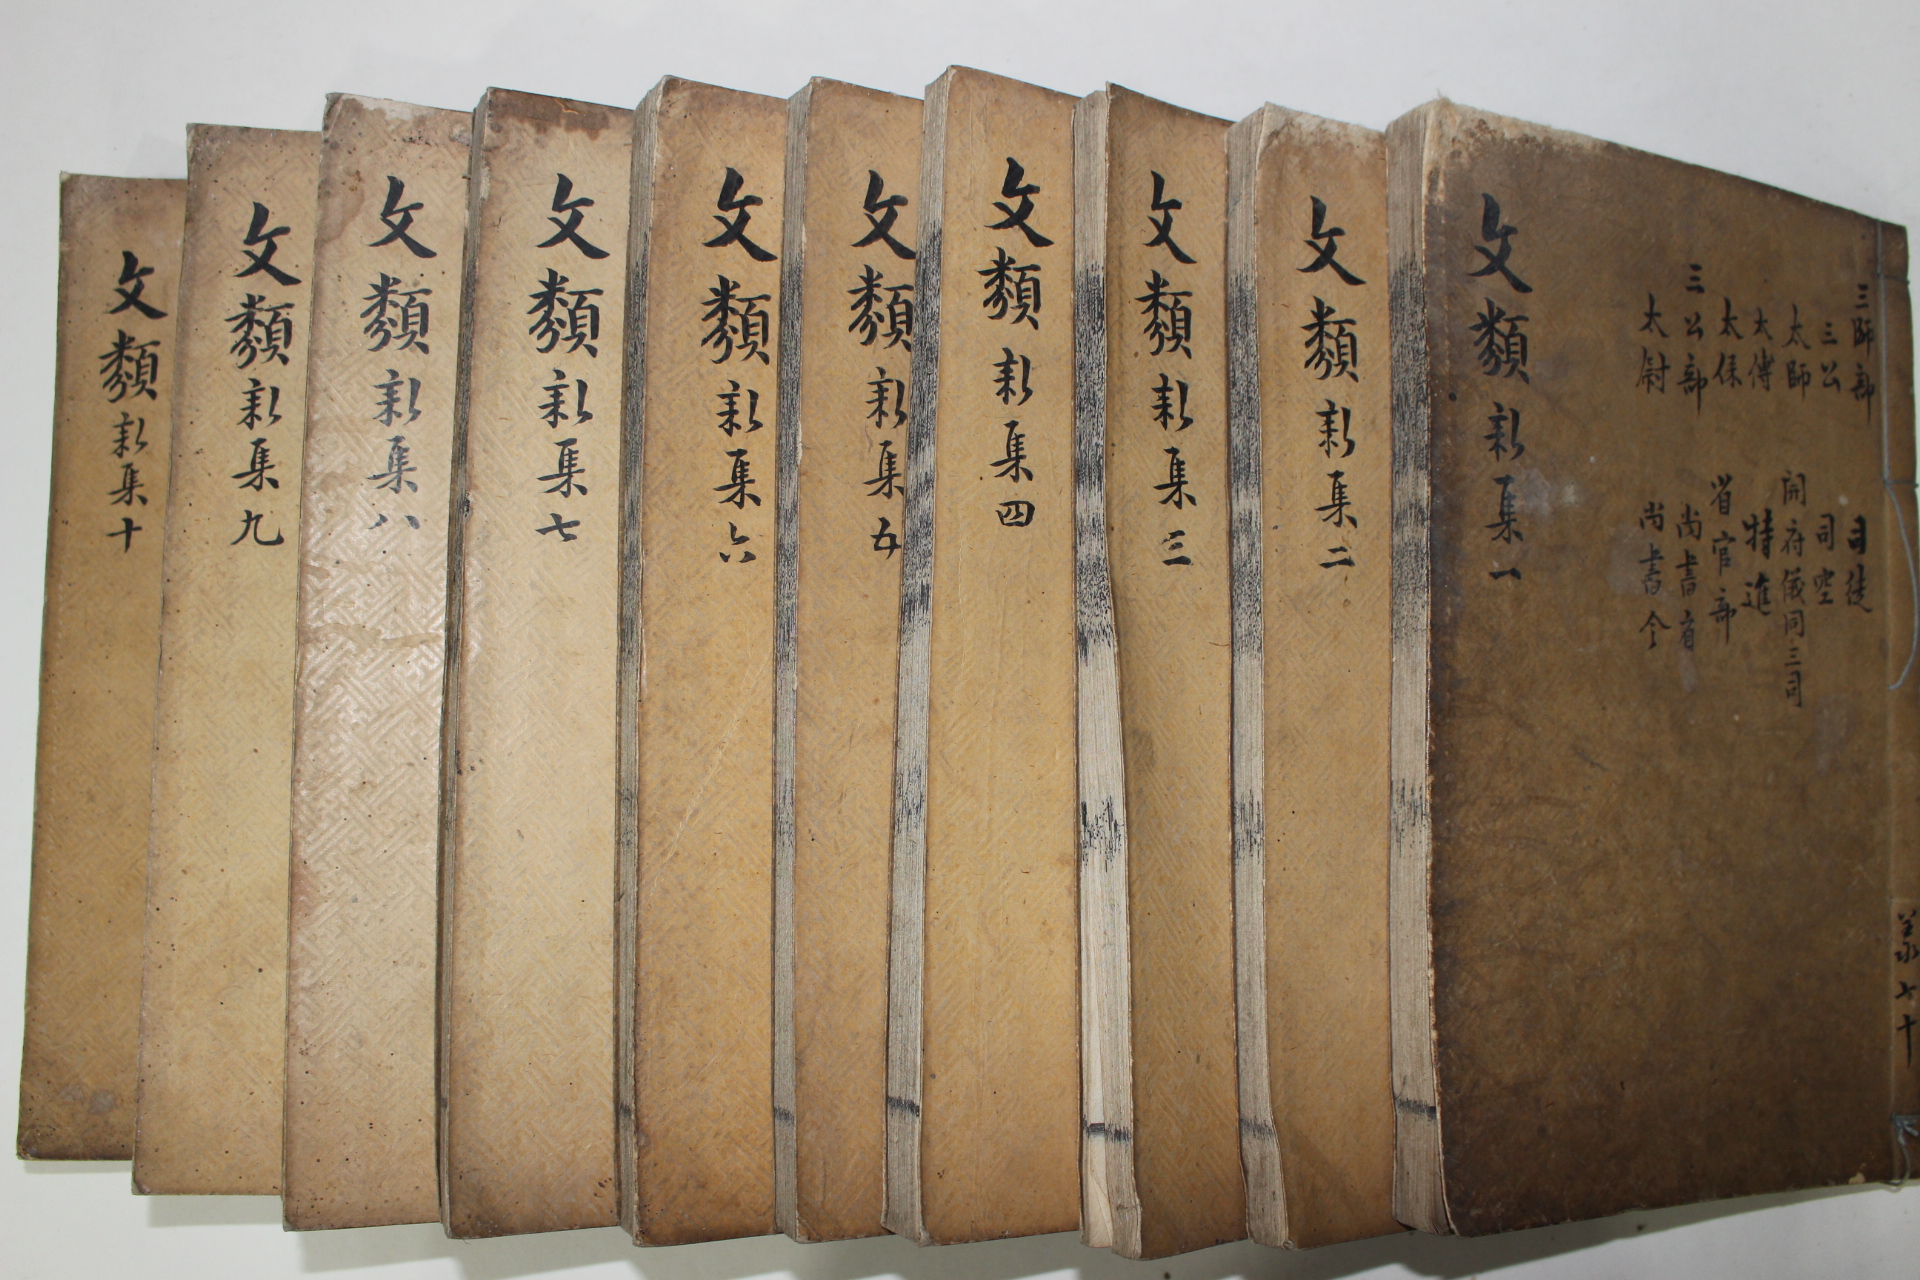 文類新集一
三師部
三公
太師
太傅
太保
三公部
太尉
司徒
司空
開府儀同三司
特進
省官部
尚書省
尚書令
文類新集二
文類新集三
文類新集四
文類新集五
文類新集六
文類新集七
文類新集八
文類新集九
文類新集十
共七十